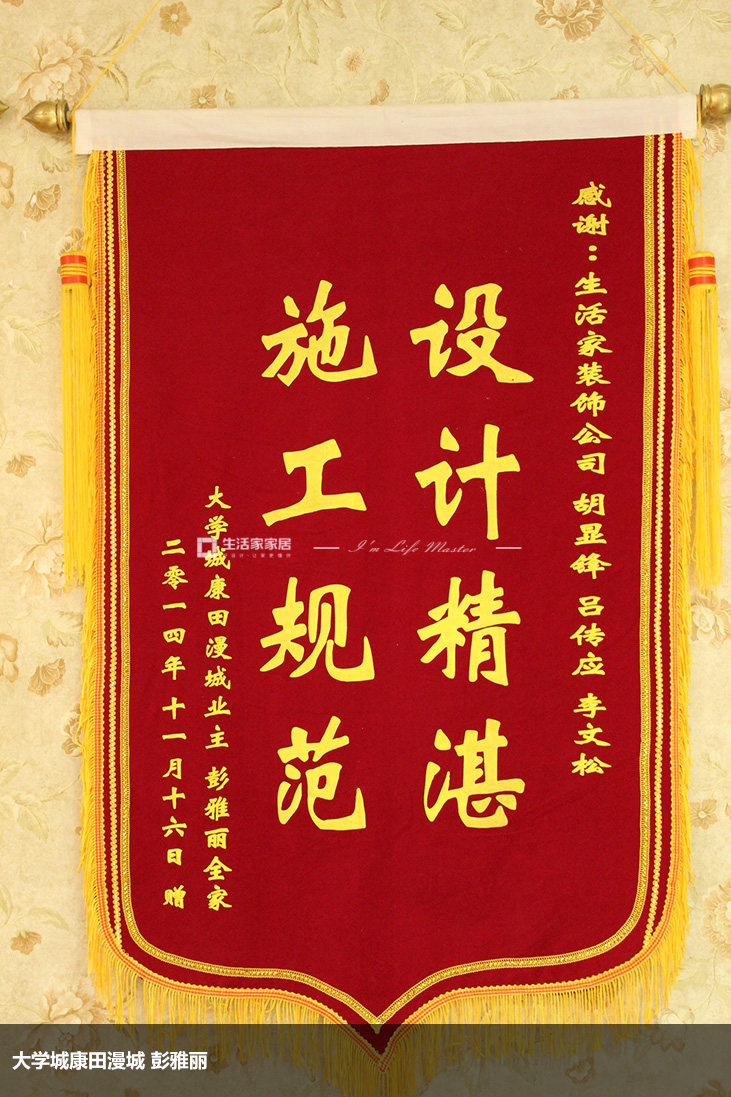 感谢：生活家装饰公司 胡显锋 吕传应 李文松
设计精湛
施工规范
大学城康田漫城业主 彭雅丽全家
二零一四年十一月十六日 赠
生活家家居
I'm Life Master
大学城康田漫城 彭雅丽